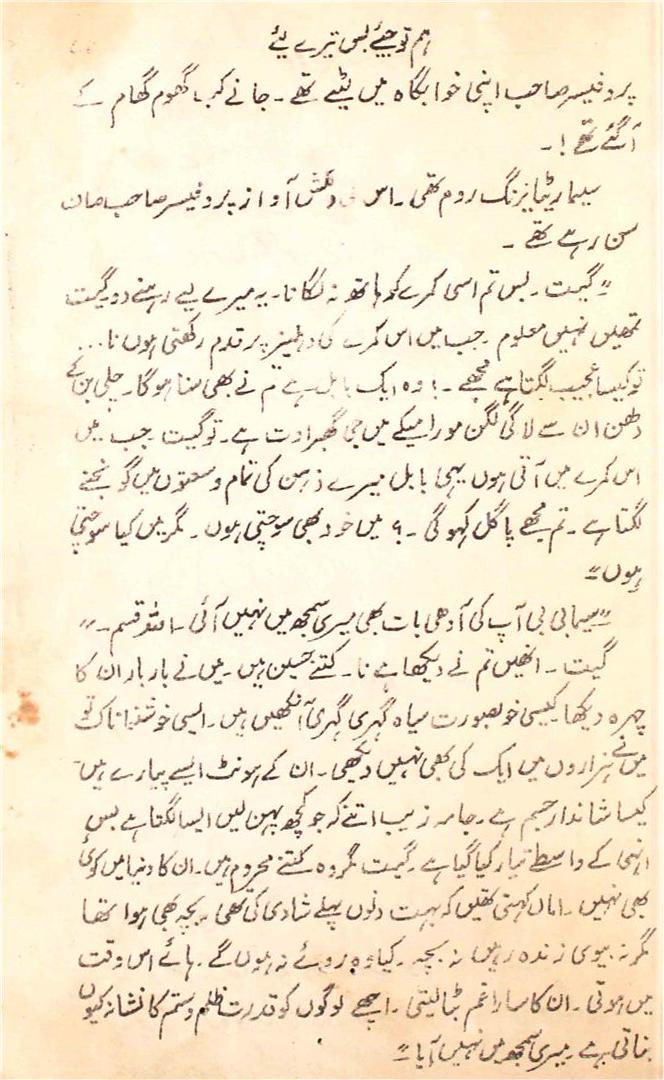 ہم تو جیئے بس تیرے لیے
پروفیسر صاحب اپنی خوابگاہ میں لیٹے تھے ۔ جانے کب گھوم گھام کے
آ گئے تھے ! ۔
سیما ریٹایرنگ روم تھی ۔ اس کی دلکش آواز پروفیسر صاحب صاف
سن رہے تھے ۔
"گیت ۔ بس تم اسی کمرے کو ہاتھ نہ لگانا ۔ یہ میرے لیے رہنے دو گیت
تمھیں نہیں معلوم ۔ جب میں اس کمرے کی دہلیز پر قدم رکھتی ہوں نا ...
تو کیسا عجیب لگتا ہے مجھے ۔ ! وہ ایک بابل ہے تم نے بھی سنا ہوگا ۔ چلی بن کے
دلھن ان سے لاگی لگن مورا میکے میں جی گھبراوت ہے ۔ تو گیت جب میں
اس کمرے میں آتی ہوں یہی بابل میرے ذہن کی تمام وسعتوں میں گونجنے
لگتا ہے ۔ تم مجھے پاگل کہو گی ۔ ؟ میں خود بھی سوچتی ہوں ۔ مگر میں کیا سوچتی
ہوں"
"سیما بی بی آپ کی آدھی بات بھی میری سمجھ میں نہیں آئی ۔ اللہ قسم ۔"
گیت ۔ انھیں تم نے دیکھا ہے نا ۔ کتنے حسین ہیں ۔ میں نے بار بار ان کا
چہرہ دیکھا ۔ کیسی خوبصورت سیاہ گہری گہری آنکھیں ہیں ۔ ایسی خوشنما ناک تو
میں نے ہزاروں میں ایک کی بھی نہیں دیکھی ۔ ان کے ہونٹ ایسے پیارے ہیں ۔
کیسا شاندار جسم ہے ۔ جامہ زیب اتنے کہ جو کچھ پہن لیں ایسا لگتا ہے بس
انہی کے واسطے تیار کیا گیا ہے ۔ گیت مگر وہ کتنے محروم ہیں ۔ ان کا دنیا میں کوئی
بھی نہیں ۔ اماں کہتی تھیں کہ بہت دنوں پہلے شادی کی تھی ۔ بچہ بھی ہوا تھا
مگر نہ بیوی زندہ رہیں نہ بچہ ۔ کیا وہ روئے نہ ہوں گے ۔ ہائے اس وقت
میں ہوتی ۔ ان کا سارا غم بٹا لیتی ۔ اچھے لوگوں کو قدرت ظلم و ستم کا نشانہ کیوں
بناتی ہے ۔ میری سمجھ میں نہیں آیا"